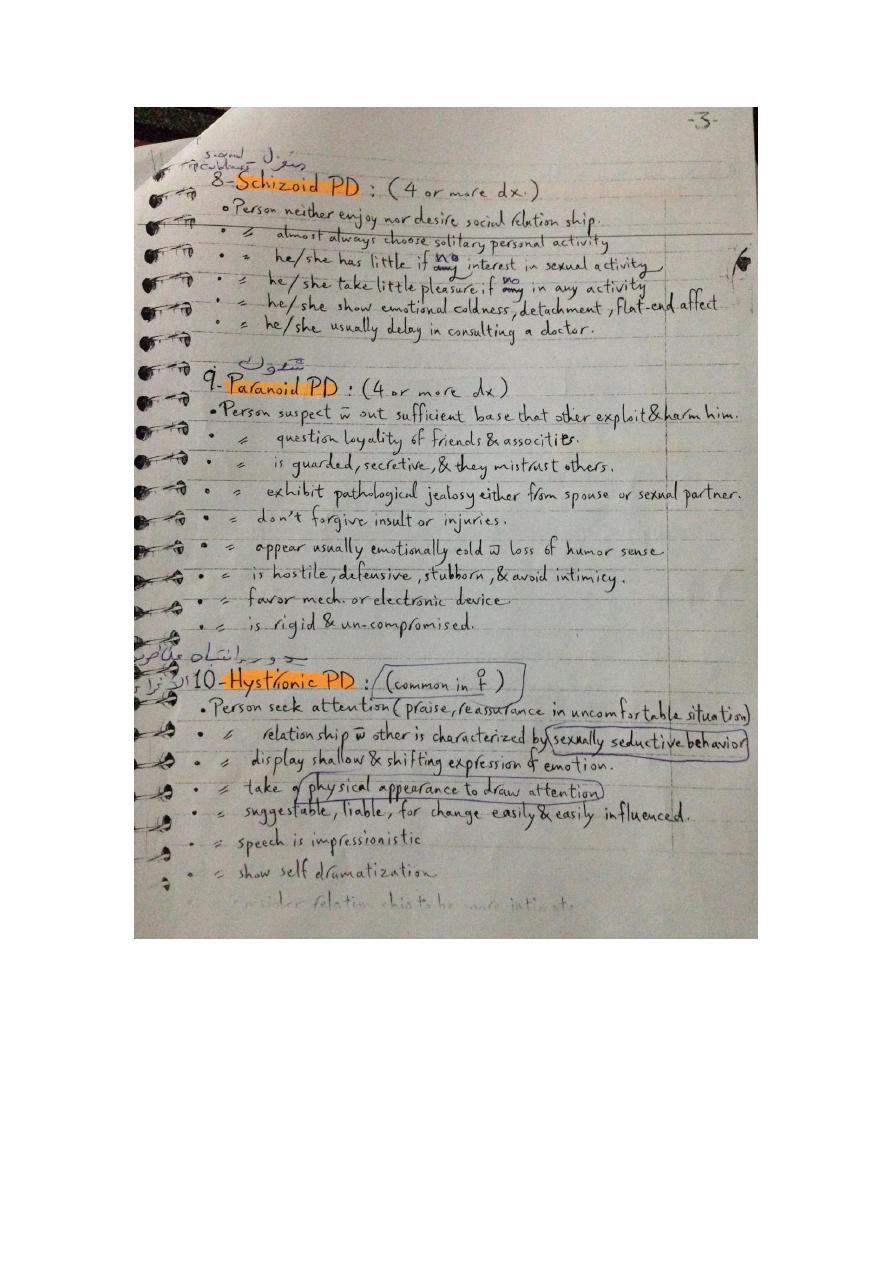 -3-
8- Schizoid PD : ( 4 or more dx. )
• Person neither enjoy nor desire social relation ship.
• 〃 almost always choose solitary personal activity
• 〃 he/she has little if no interest in sexual activity
• 〃 he/she take little pleasure if no in any activity
• 〃 he/she show emotional coldness, detachment, flat-end affect
• 〃 he/she usually delay in consulting a doctor.
شكوك
9- Paranoid PD : (4 or more dx)
• Person suspect w̅ out sufficient base that other exploit & harm him.
• 〃 question loyality of friends & associties.
• 〃 is guarded, secretive, & they mistrust others.
• 〃 exhibit pathological jealosy either from spouse or sexual partner.
• 〃 don't forgive insult or injuries.
• 〃 appear usually emotionally cold w̅ loss of humor sense
• 〃 is hostile, defensive, stubborn, & avoid intimicy.
• 〃 favor mech. or electronic device.
• 〃 is rigid & un-compromised.
انتباه
10- Hystrionic PD : (common in ♀)
• Person seek attention (praise, reassurance in uncomfortable situation)
• 〃 relationship w̅ other is characterized by sexually seductive behavior
• 〃 display shallow & shifting expression of emotion.
• 〃 take physical appearance to draw attention
• 〃 suggestable, liable, for change easily & easily influenced.
• 〃 speech is impressionistic
• 〃 show self dramatization
relation to be more intimate